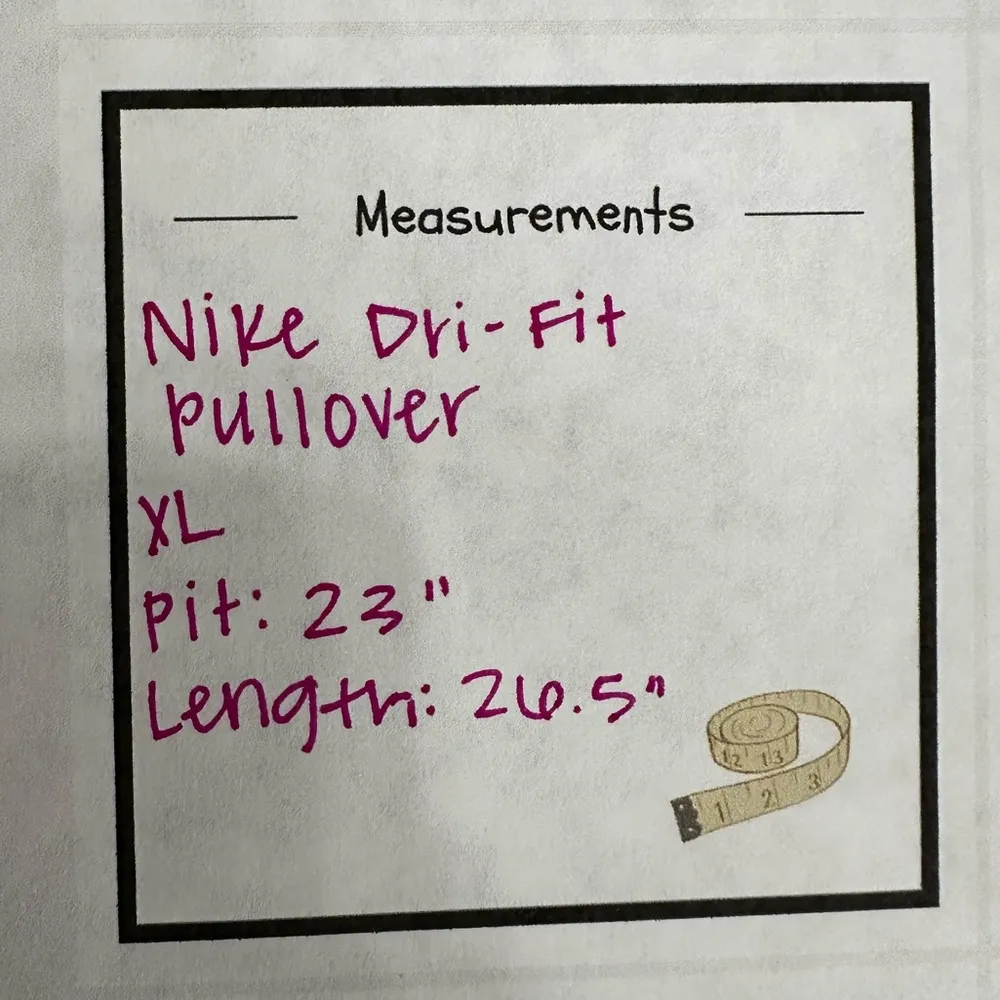 Measurements
Nike Dri-Fit
pullover
XL
pit: 23"
Length: 26.5"
12 13
1 2 3